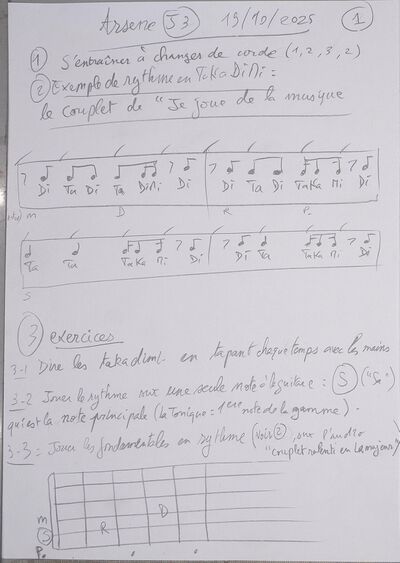 Arsene S3 19/10/2025 1
1 S'entraîner à changer de corde (1, 2, 3, 2)
2 Exemple de rythme en TaKaDiMi =
le couplet de "Je joue de la musique
Di Ta Di Ta DiMi Di Di Ta Di TaKa Mi Di
m D R P.
Ta Ta TaKa Mi Di Di Ta TaKa Mi Di
S
3 exercices
3-1 Dire les takadimi en tapant chaque temps avec les mains
3-2 Jouer le rythme sur une seule note à la guitare : S ("Sa"
qui est la note principale (la Tonique = 1ere note de la gamme).
3-3 = Jouer les fondamentales en rythme (voir 2, sur l'audio
"couplet ralenti en La majeur")
D
m R
S
P.